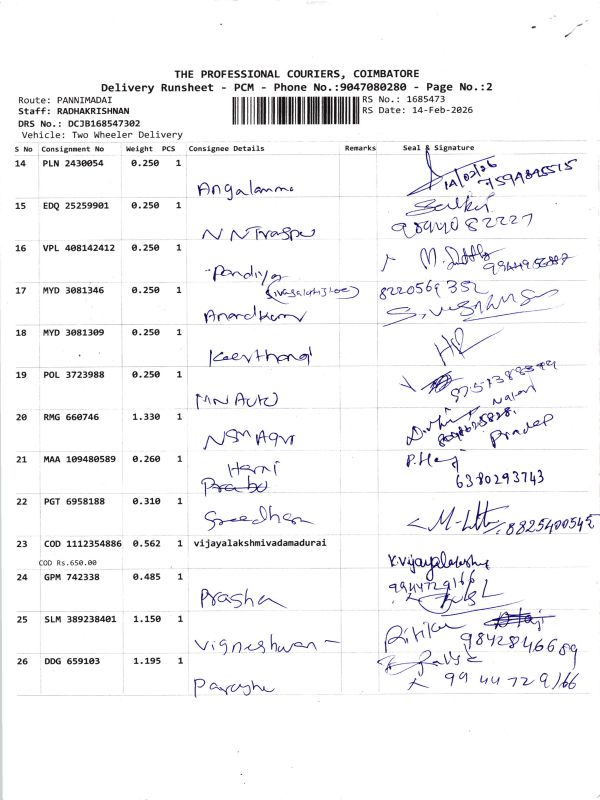 THE PROFESSIONAL COURIERS, COIMBATORE
Delivery Runsheet - PCM - Phone No.:9047080280 - Page No.:2
Route: PANNIMADAI
Staff: RADHAKRISHNAN
RS No.: 1685473
DRS No.: DCJB168547302
RS Date: 14-Feb-2026
Vehicle: Two Wheeler Delivery
S No Consignment No Weight PCS Consignee Details Remarks Seal & Signature
14 PLN 2430054 0.250 1
Angalamma 14/02/26
15 EDQ 25259901 0.250 1
9894082227
16 VPL 408142412 0.250 1
Pandiya
17 MYD 3081346 0.250 1 8220569352
Anandkumar
18 MYD 3081309 0.250 1
19 POL 3723988 0.250 1
MN Auto
20 RMG 660746 1.330 1
NSM Agri Pradeep
21 MAA 109480589 0.260 1 Harni P.Harj
Prabu 6380293743
22 PGT 6958188 0.310 1
Sreedharan 8825400545
23 COD 1112354886 0.562 1 vijayalakshmivadamadurai
COD Rs.650.00
24 GPM 742338 0.485 1 9944729166
Prasha
25 SLM 389238401 1.150 1 Ritika
Vigneshwaran 9842846689
26 DDG 659103 1.195 1
9944729166